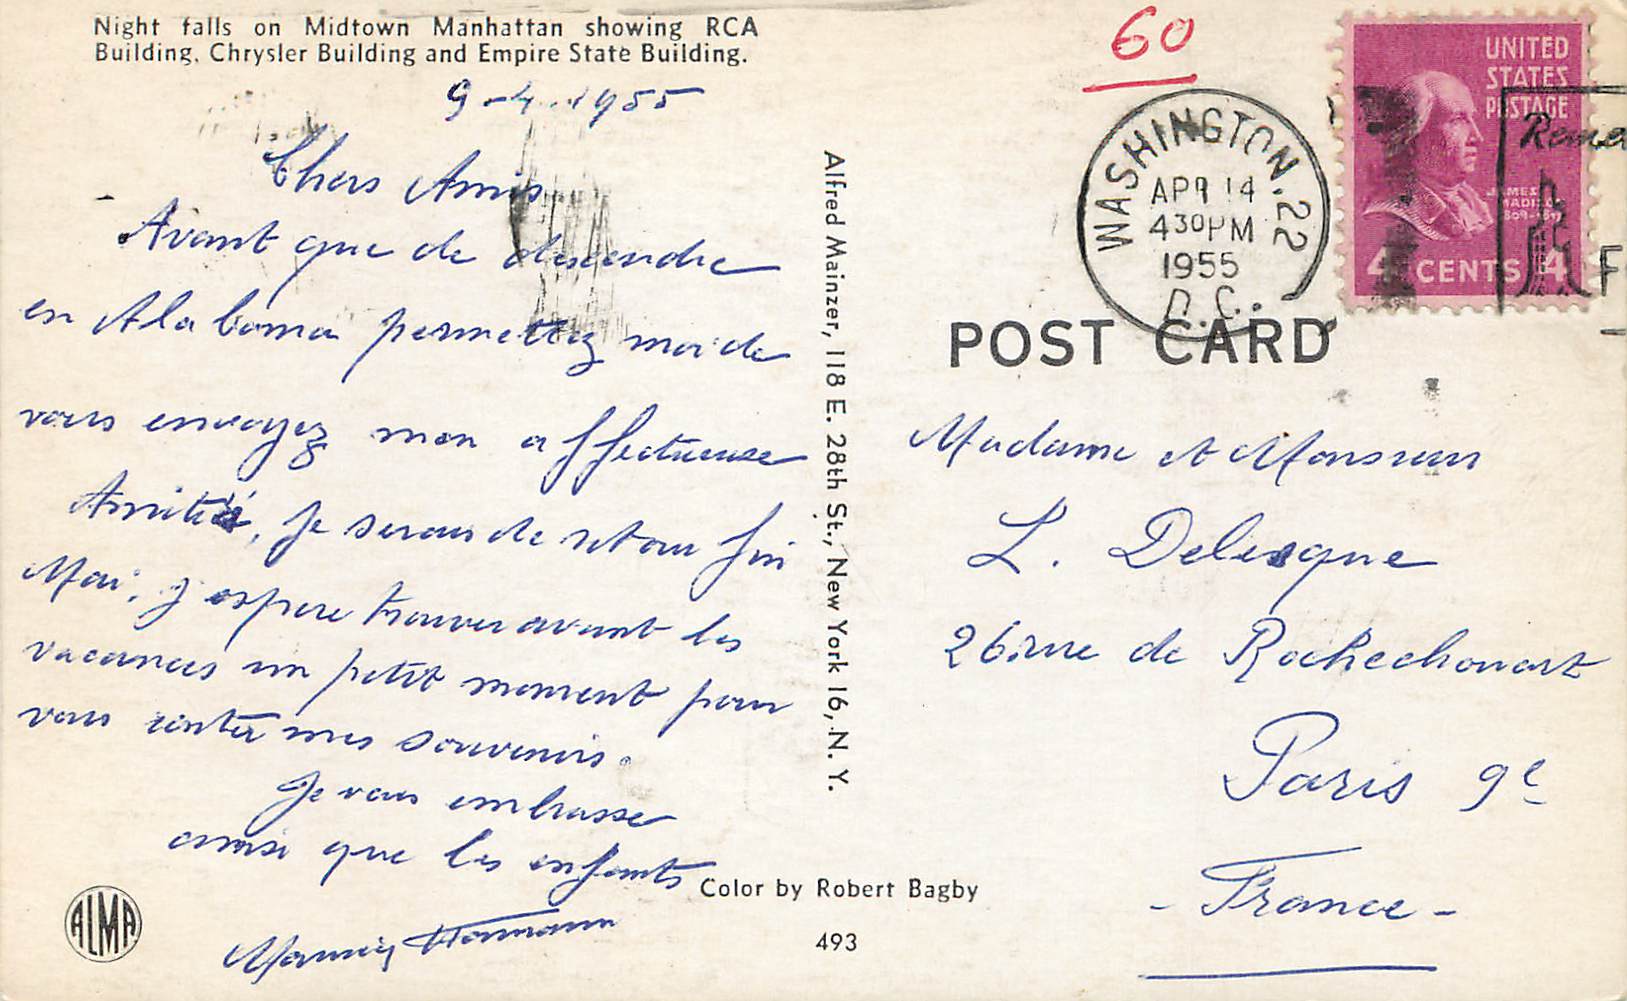 Night falls on Midtown Manhattan showing RCA
Building, Chrysler Building and Empire State Building.
9-4-1955
Chers Amis
Avant que de descendre
en Alabama permettez moi de
vous envoyez mon affectueuse
Amitié, je serais de retour fin
Mai, j espere trouver avant les
vacances un petit moment pour
vous conter mes souvenirs.
Je vous embrasse
ainsi que les enfants
ALMA
Alfred Mainzer, 118 E. 28th St., New York 16, N. Y.
Color by Robert Bagby
493
60
WASHINGTON, 22
APR 14
430PM
1955
D.C.
UNITED
STATES
POSTAGE
JAMES
MADISON
4 CENTS 4
POST CARD
Madame et Monsieur
L. Delesque
26 rue de Rochechouart
Paris 9e
- France -